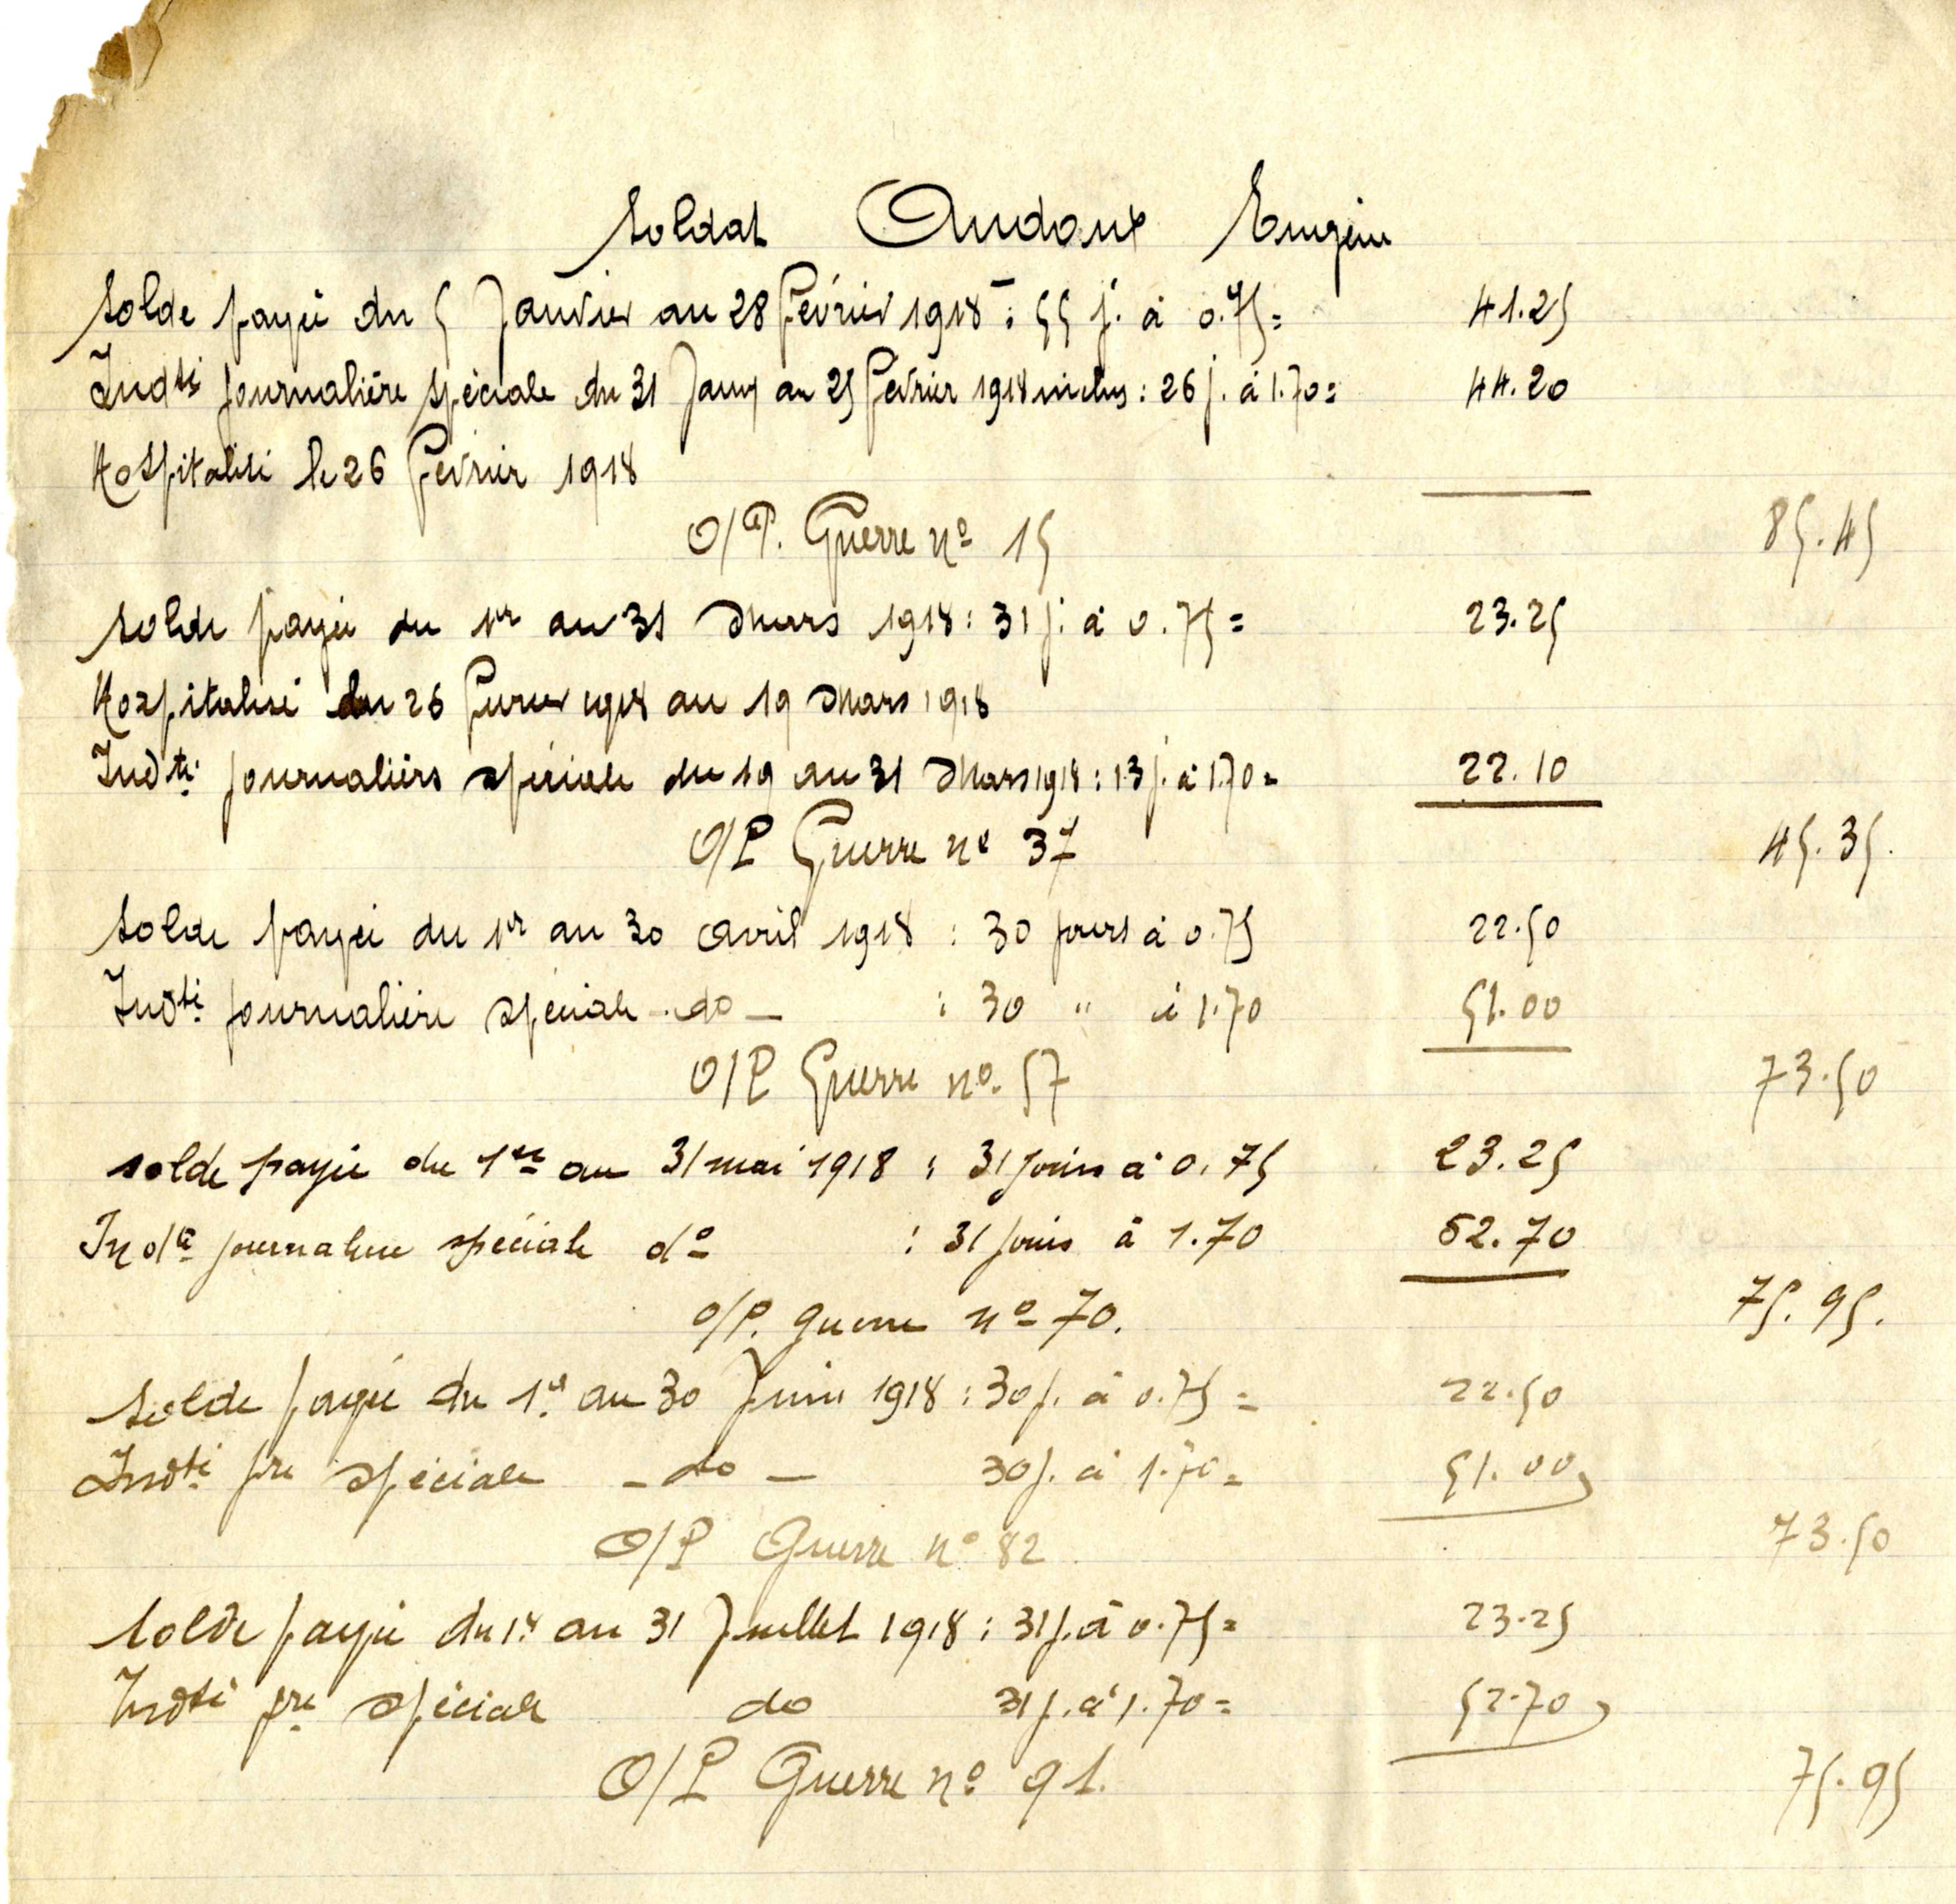 Soldat Audoux Eugène
Solde payée du 5 Janvier au 28 février 1918 : 55 j. à 0.75= 41.25
Indté Journalière spéciale du 31 Janv au 25 février 1918 inclus : 26 j. à 1.70= 44.20
Hospitalisé le 26 février 1918
O/P. Guerre no 15 85.45
Solde payée du 1er au 31 Mars 1918 : 31 j. à 0.75= 23.25
Hospitalisé du 26 février 1918 au 19 Mars 1918
Indté journalière spéciale du 19 au 31 Mars 1918 : 13 j. à 1.70= 22.10
O/P Guerre no 37 45.35.
Solde payée du 1er au 30 avril 1918 : 30 jours à 0.75 22.50
Indté journalière spéciale - do - : 30 " à 1.70 51.00
O/P Guerre no. 57 73.50
solde payée du 1er au 31 mai 1918 : 31 jours à 0.75 23.25
Indté journalière spéciale do : 31 jours à 1.70 52.70
O/P. Guerre no 70. 75.95.
Solde payée du 1er au 30 Juin 1918 : 30 j. à 0.75= 22.50
Indté jre spéciale - do - 30 j. à 1.70= 51.00
O/P Guerre no 82 73.50
Solde payée du 1er au 31 Juillet 1918 : 31 j. à 0.75= 23.25
Indté jre spéciale do 31 j. à 1.70= 52.70
O/P Guerre no 91. 75.95